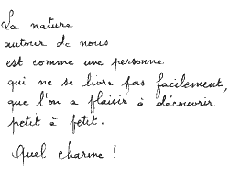 La nature
autour de nous
est comme une personne
qui ne se livre pas facilement,
que l'on a plaisir à découvrir
petit à petit.
Quel charme !